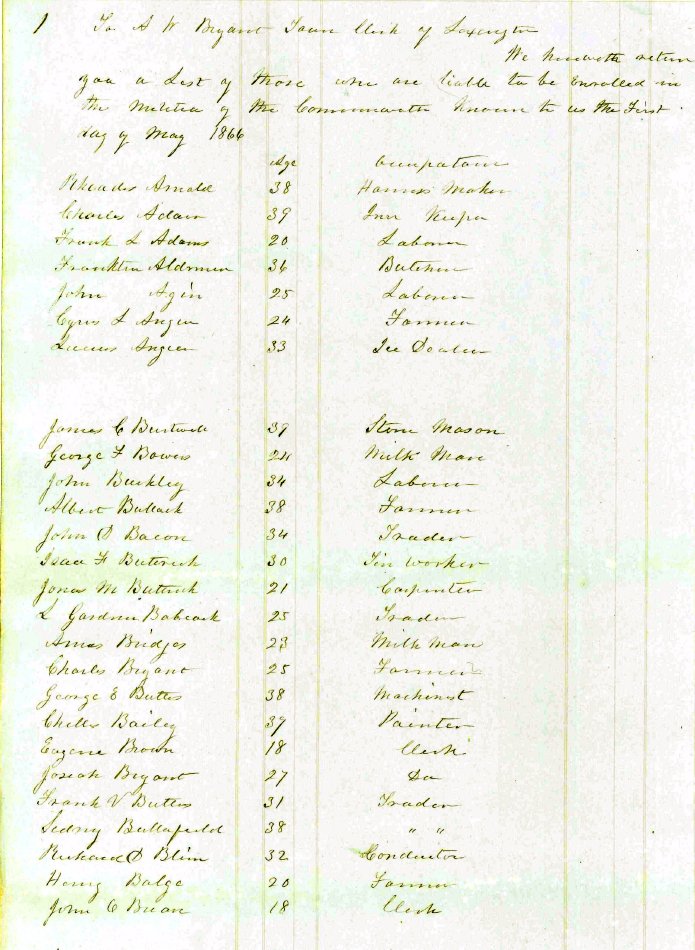 1 To A W Bryant Town Clerk of Lexington
We herewith return
you a List of those who are liable to be Enrolled in
the Militia of the Commonwealth Known to us the First
day of May 1866
Age Occupation
Rhoades Arnold 38 Harness Maker
Charles Adair 39 Inn Keeper
Frank L Adams 20 Laborer
Franklin Alderman 36 Butcher
John Agin 25 Laborer
Cyrus L Angier 24 Farmer
Lucius Angier 33 Ice Dealer
James C 39 Stone Mason
George F Bowers 24 Milk Man
John Buckley 34 Laborer
Albert Bullock 38 Farmer
John D Bacon 34 Trader
Isaac F Butterick 30 Tin Worker
Jonas M Buttrick 21 Carpenter
L Gardner Babcock 25 Trader
Amos Bridges 23 Milk Man
Charles Bryant 25 Farmer
George E Butters 38 Machinist
Bailey 37 Painter
Eugene Brown 18 Clerk
Josiah Bryant 27 Do
Frank V Butters 31 Trader
Sidney Butterfield 38 " "
Richard D Blinn 32 Conductor
Henry 20 Farmer
John C 18 Clerk